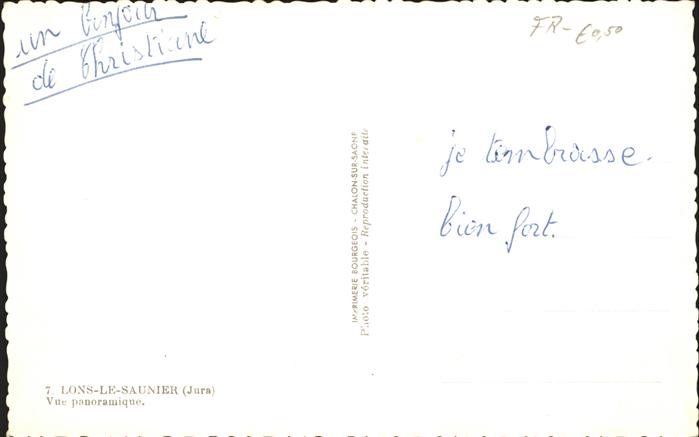 un bonjour
de Christiane
FR - €0,50
je t'embrasse.
bien fort.
IMPRIMERIE BOURGEOIS - CHALON-SUR-SAONE
Photo véritable - Reproduction interdite
7. LONS-LE-SAUNIER (Jura)
Vue panoramique.